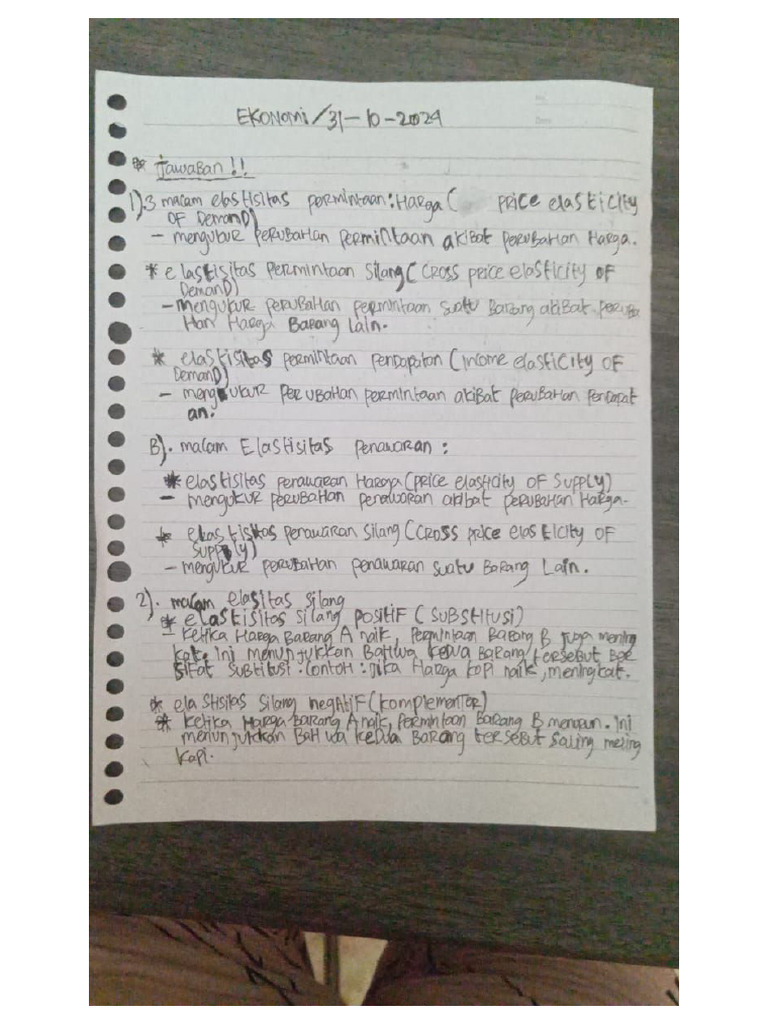 EKONOMI/31-10-2024
* Jawaban!!
1). 3 macam elastisitas permintaan: Harga ( price elasticity
OF DemanD)
- mengukur perubahan permintaan akibat perubahan Harga.
* elastisitas permintaan silang (cross price elasticity OF
DemanD)
- mengukur perubahan permintaan suatu Barang akibat peruba
Han Harga Barang Lain.
* elastisitas permintaan pendapatan (income elasticity OF
DemanD)
- mengukur perubahan permintaan akibat perubahan pendapat
an.
B). macam Elastisitas penawaran:
* elastisitas penawaran Harga (price elasticity OF Supply)
- mengukur perubahan penawaran akibat perubahan Harga.
* elastisitas penawaran silang (cross price elasticity OF
Supply)
- mengukur perubahan penawaran suatu Barang Lain.
2). macam elasitas silang
* elastisitas silang positif (substitusi)
- ketika Harga Barang A naik, permintaan Barang B juga mening
kat. ini menunjukkan Bahwa kedua Barang tersebut Ber
sifat substitusi. contoh: jika Harga kopi naik, meningkat.
* elastisitas silang negatif (komplementer)
* ketika Harga Barang A naik, permintaan Barang B menurun. ini
menunjukkan Bahwa kedua Barang tersebut saling meleng
kapi.